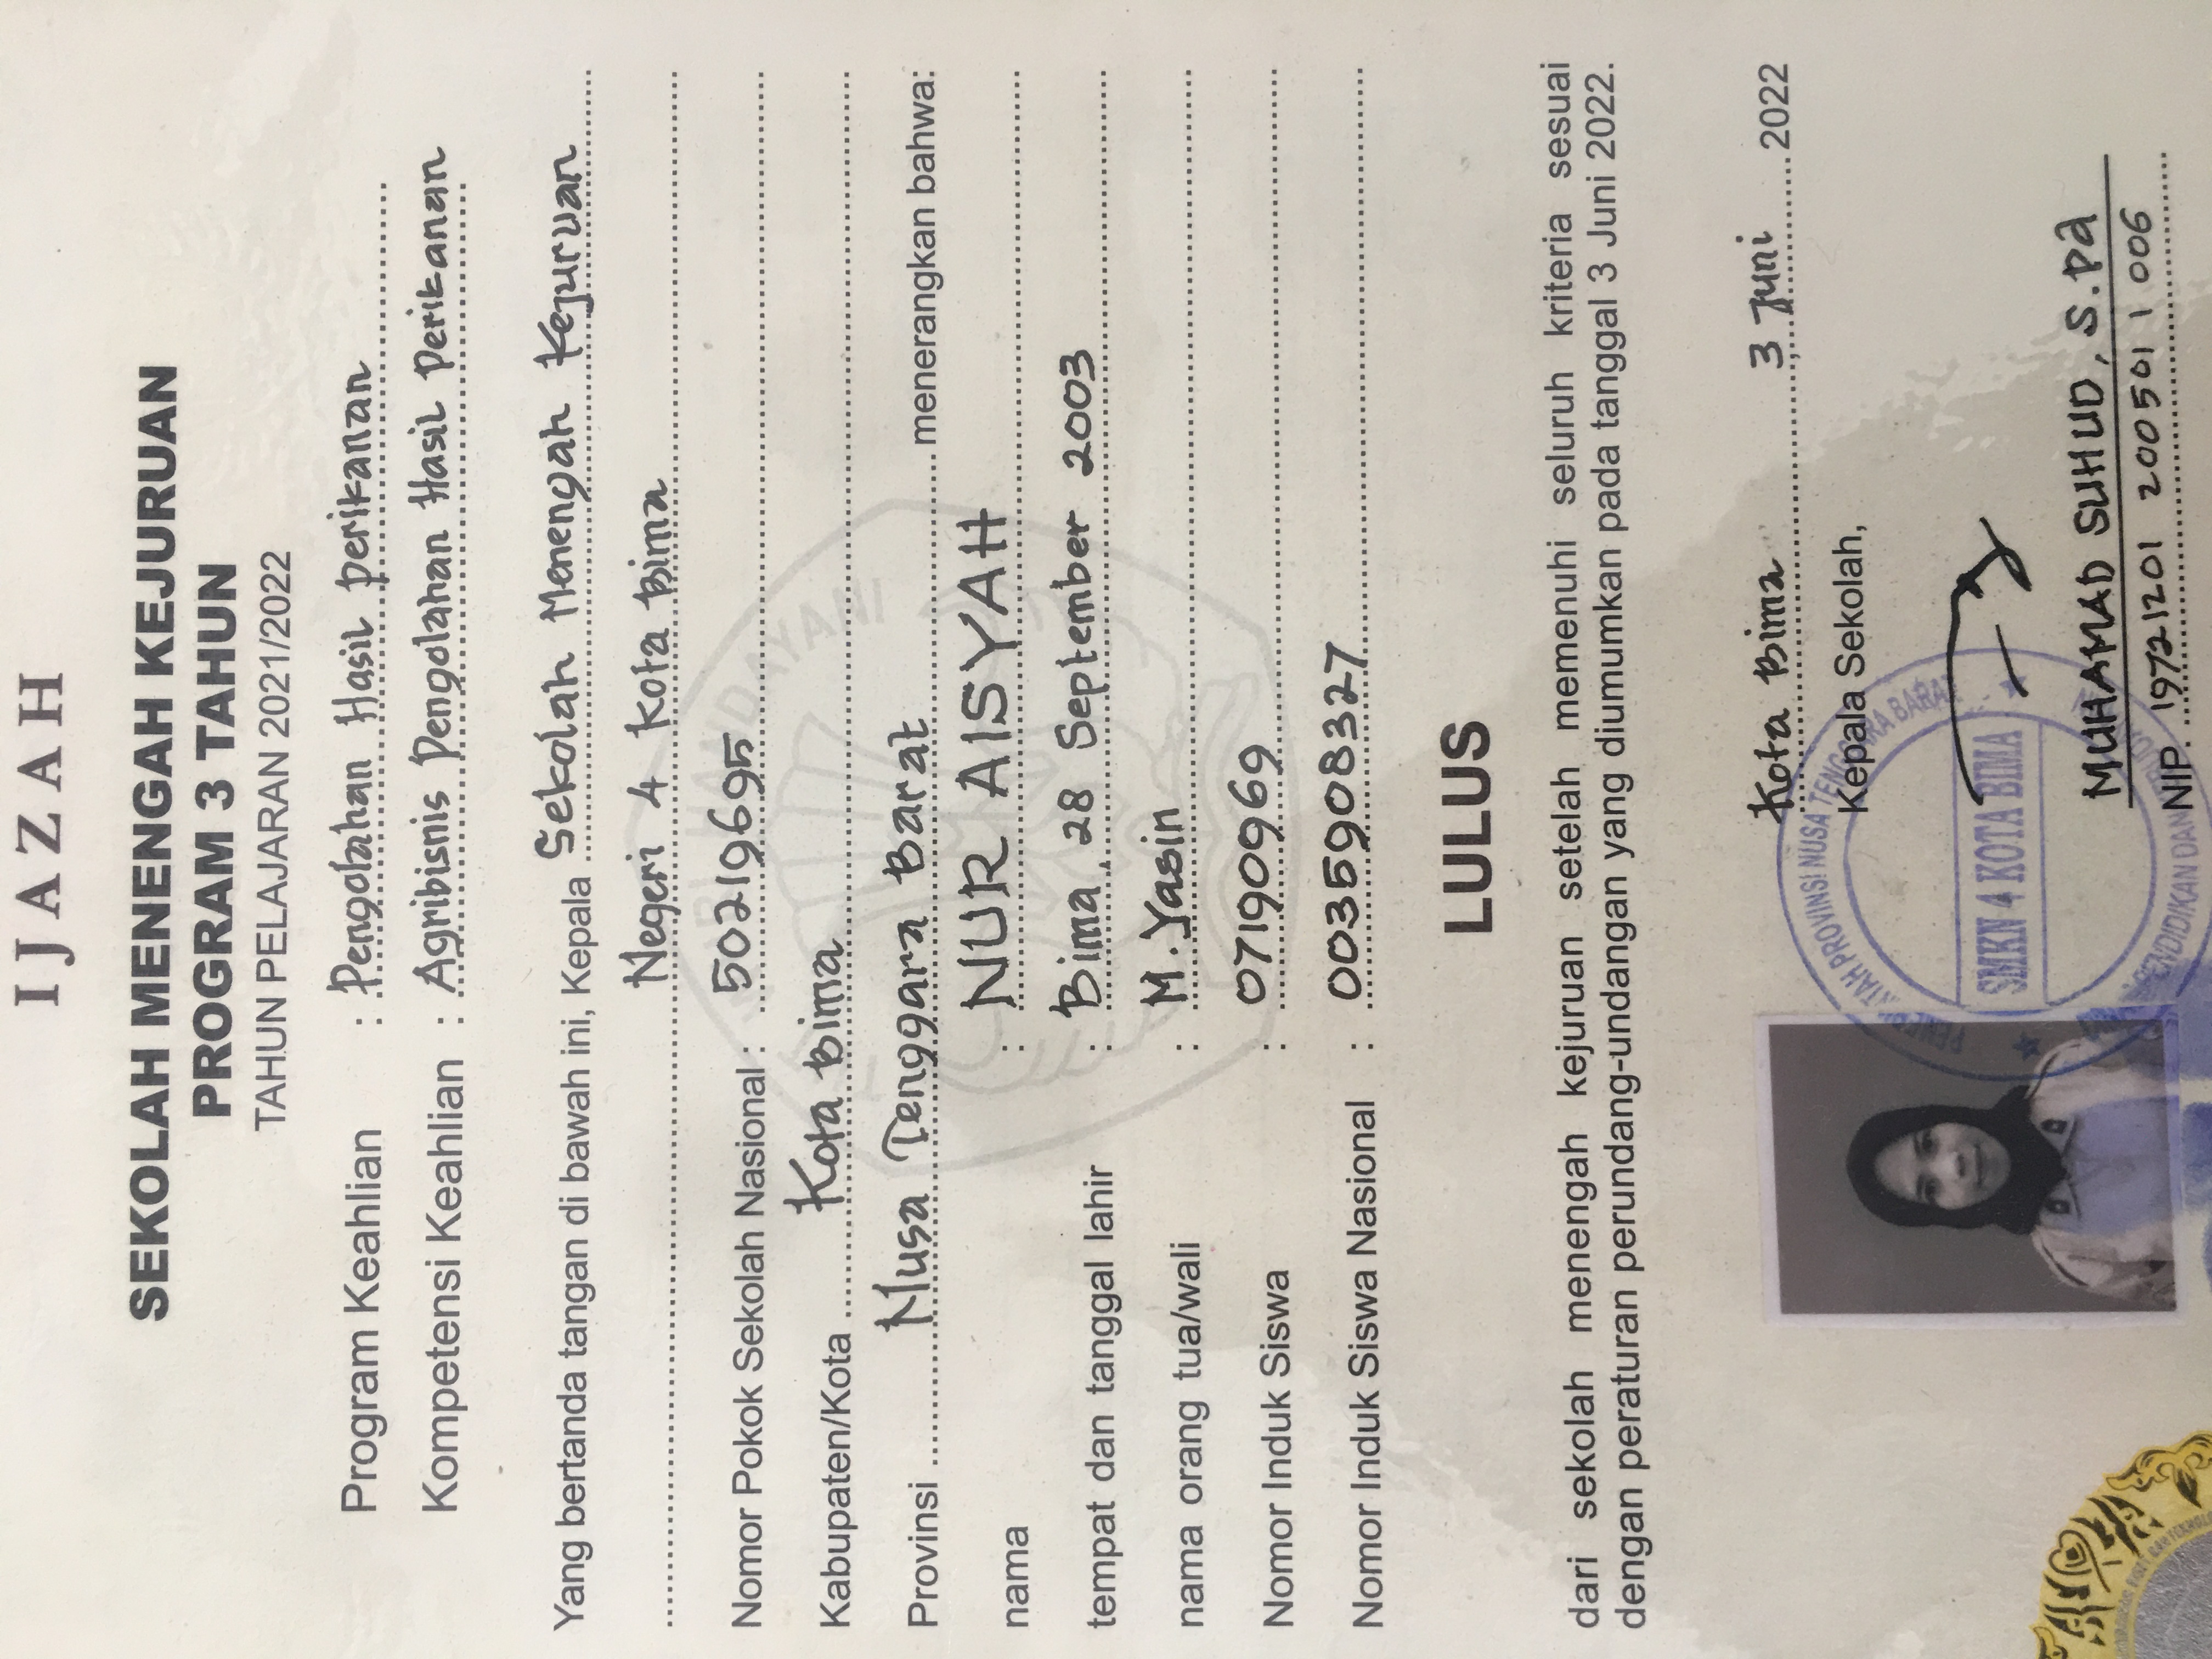 IJAZAH
SEKOLAH MENENGAH KEJURUAN
PROGRAM 3 TAHUN
TAHUN PELAJARAN 2021/2022
Program Keahlian : Pengolahan Hasil perikanan
Kompetensi Keahlian : Agribisnis Pengolahan Hasil Perikanan
Yang bertanda tangan di bawah ini, Kepala Sekolah Menengah Kejuruan
Negeri 4 Kota Bima
Nomor Pokok Sekolah Nasional : 50219695
Kabupaten/Kota Kota Bima
Provinsi Nusa Tenggara Barat menerangkan bahwa:
nama : NUR AISYAH
tempat dan tanggal lahir : Bima, 28 September 2003
nama orang tua/wali : M. Yasin
Nomor Induk Siswa : 07190969
Nomor Induk Siswa Nasional : 0035908327
LULUS
dari sekolah menengah kejuruan setelah memenuhi seluruh kriteria sesuai
dengan peraturan perundang-undangan yang diumumkan pada tanggal 3 Juni 2022.
Kota Bima, 3 Juni 2022
Kepala Sekolah,
PROVINSI NUSA TENGGARA BARAT
SMKN 4 KOTA BIMA
PENDIDIKAN DAN
MUHAMAD SUHUD, S.Pd
NIP. 19721201 200501 1 006
HANDAYANI